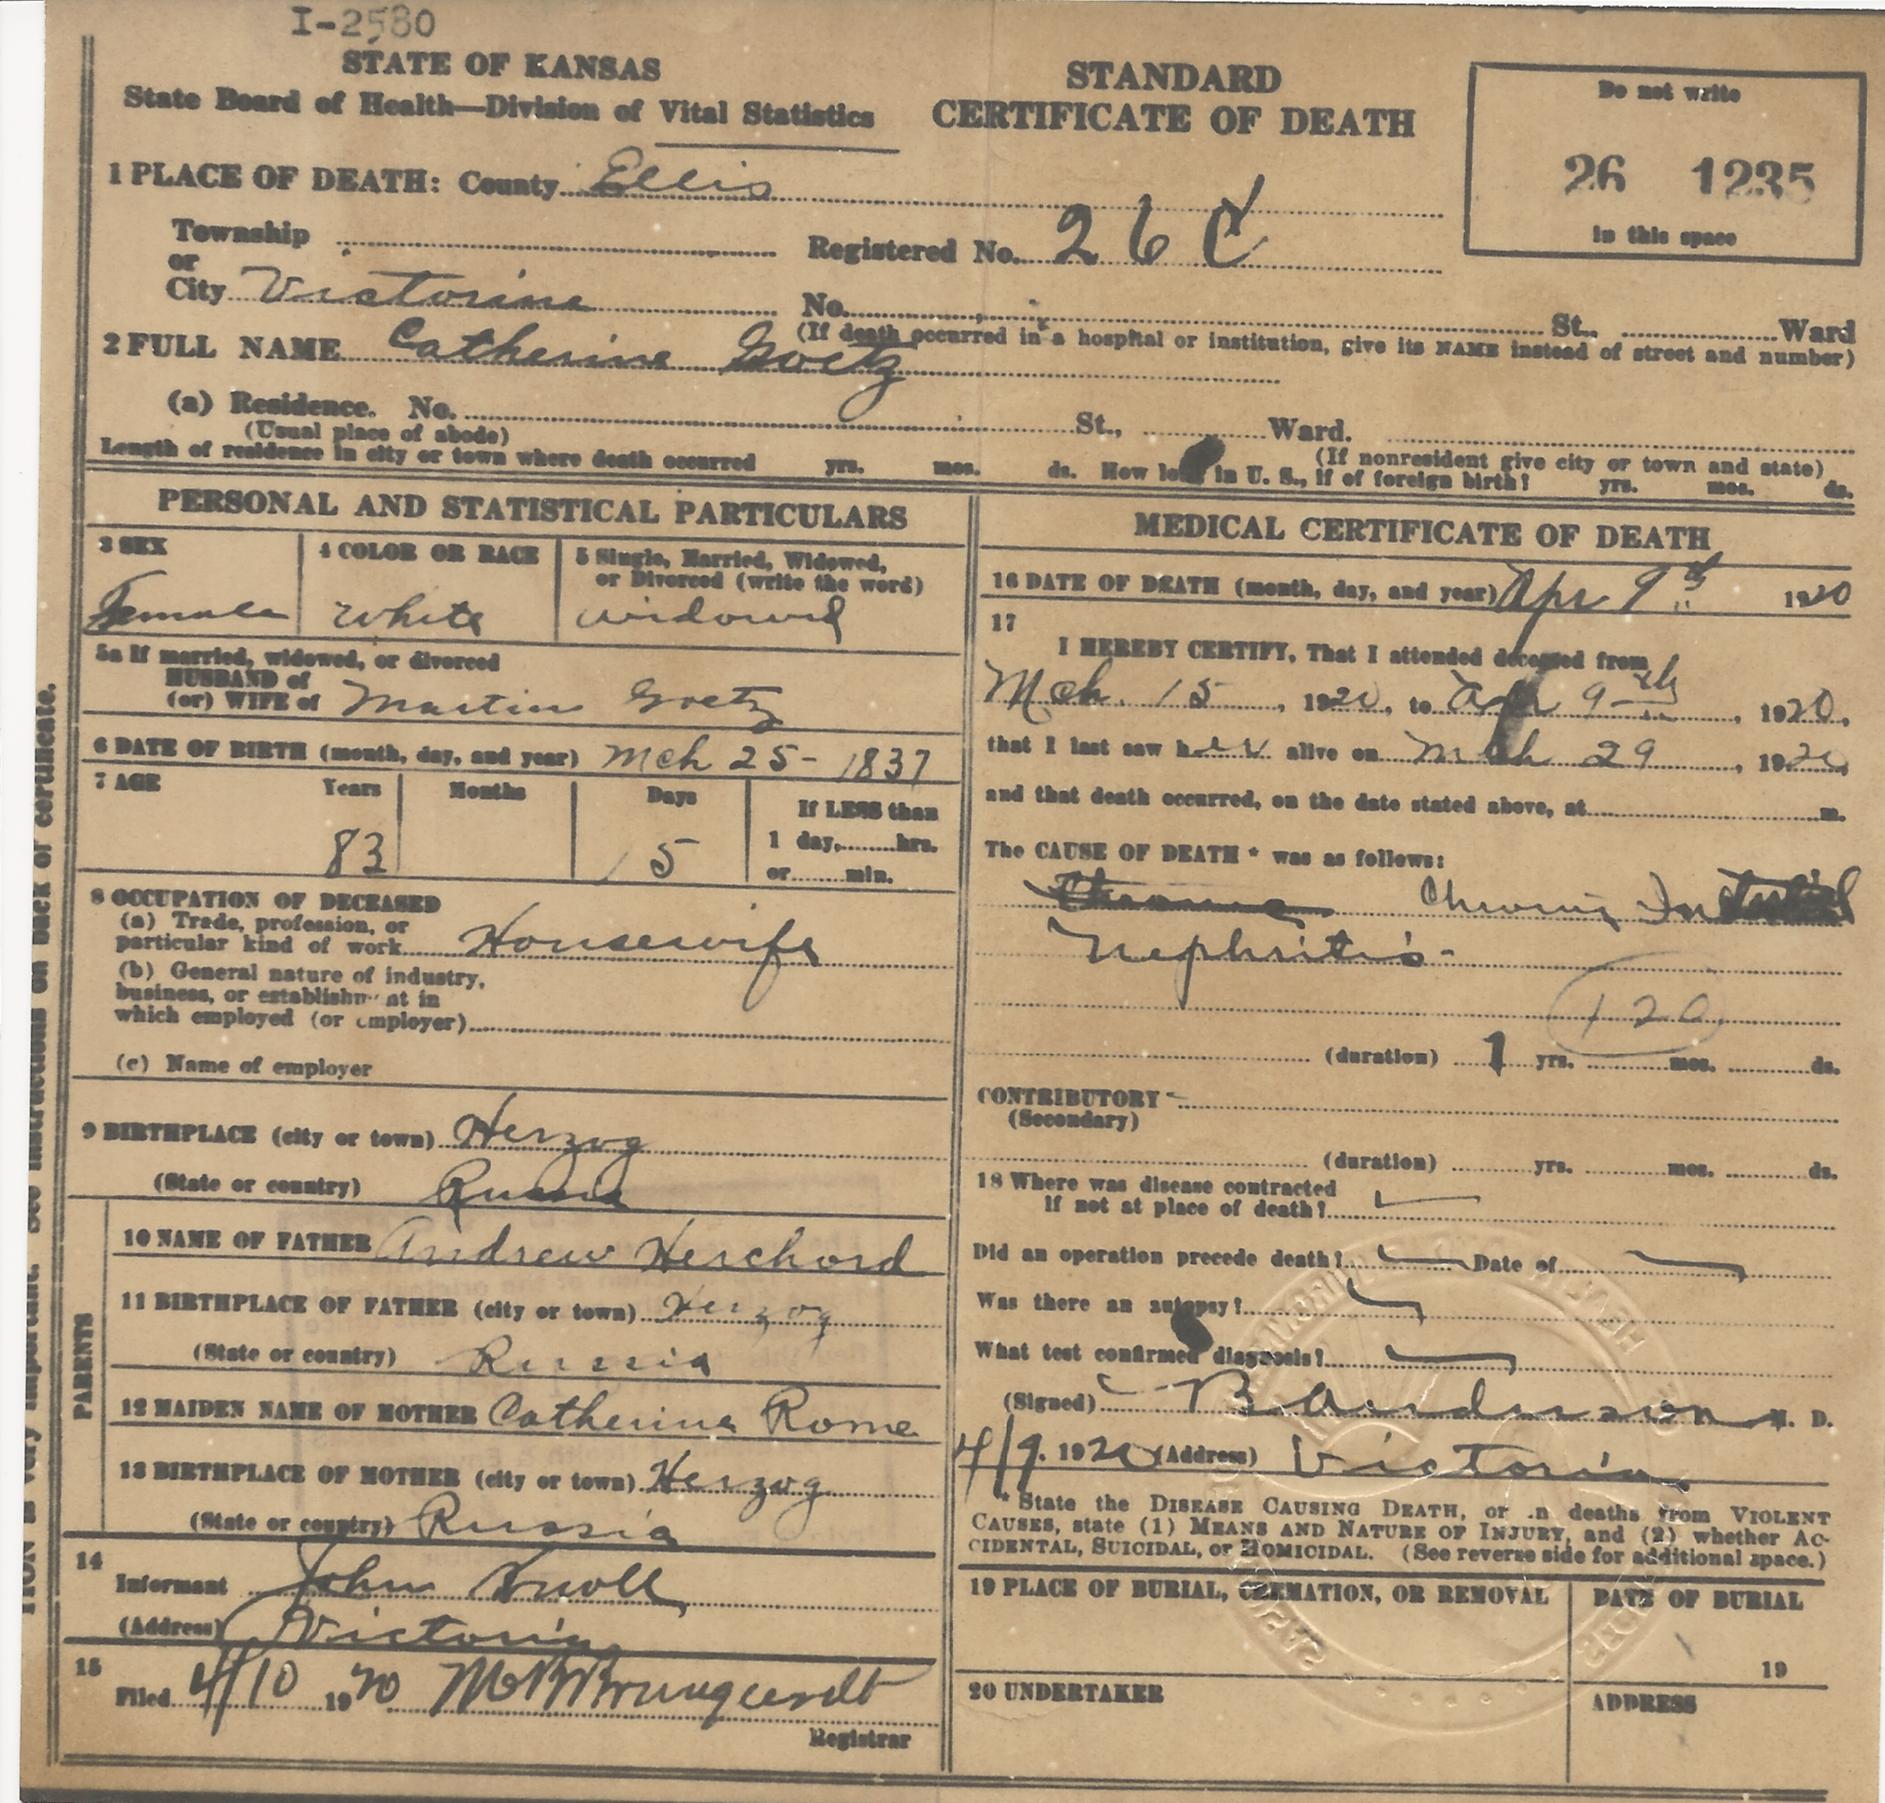 I-2580
STATE OF KANSAS
State Board of Health—Division of Vital Statistics
STANDARD
CERTIFICATE OF DEATH
Do not write
26 1235
in this space
1 PLACE OF DEATH: County Ellis
Township
or
City Victoria
Registered No. 26
No. St., Ward
(If death occurred in a hospital or institution, give its NAME instead of street and number)
2 FULL NAME Catherine Goetz
(a) Residence. No. St., Ward.
(Usual place of abode)
(If nonresident give city or town and state)
Length of residence in city or town where death occurred yrs. mos. ds. How long in U. S., if of foreign birth? yrs. mos. ds.
PERSONAL AND STATISTICAL PARTICULARS
3 SEX
Female
4 COLOR OR RACE
White
5 Single, Married, Widowed,
or Divorced (write the word)
widowed
5a If married, widowed, or divorced
HUSBAND of
(or) WIFE of Martin Goetz
6 DATE OF BIRTH (month, day, and year) Mch 25- 1837
7 AGE Years Months Days
83 15
If LESS than
1 day, hrs.
or min.
8 OCCUPATION OF DECEASED
(a) Trade, profession, or
particular kind of work Housewife
(b) General nature of industry,
business, or establishment in
which employed (or employer)
(c) Name of employer
9 BIRTHPLACE (city or town) Herzog
(State or country) Russia
PARENTS
10 NAME OF FATHER Andrew Herchord
11 BIRTHPLACE OF FATHER (city or town) Herzog
(State or country) Russia
12 MAIDEN NAME OF MOTHER Catherine Rome
13 BIRTHPLACE OF MOTHER (city or town) Herzog
(State or country) Russia
14
Informant John Knoll
(Address) Victoria
15
Filed 4/10 1920
Registrar
MEDICAL CERTIFICATE OF DEATH
16 DATE OF DEATH (month, day, and year) Apr 9th 1920
17
I HEREBY CERTIFY, That I attended deceased from
Mch. 15, 1920, to Apr 9th, 1920,
that I last saw her alive on Mch 29, 1920
and that death occurred, on the date stated above, at m.
The CAUSE OF DEATH * was as follows:
Chronic
Nephritis-
120
(duration) 1 yrs. mos. ds.
CONTRIBUTORY
(Secondary)
(duration) yrs. mos. ds.
18 Where was disease contracted
if not at place of death?
Did an operation precede death? Date of
Was there an autopsy?
What test confirmed diagnosis?
(Signed) B Anderson M. D.
4/9. 1920 (Address) Victoria
* State the DISEASE CAUSING DEATH, or in deaths from VIOLENT
CAUSES, state (1) MEANS AND NATURE OF INJURY, and (2) whether AC-
CIDENTAL, SUICIDAL, or HOMICIDAL. (See reverse side for additional space.)
19 PLACE OF BURIAL, CREMATION, OR REMOVAL
DATE OF BURIAL
19
20 UNDERTAKER
ADDRESS